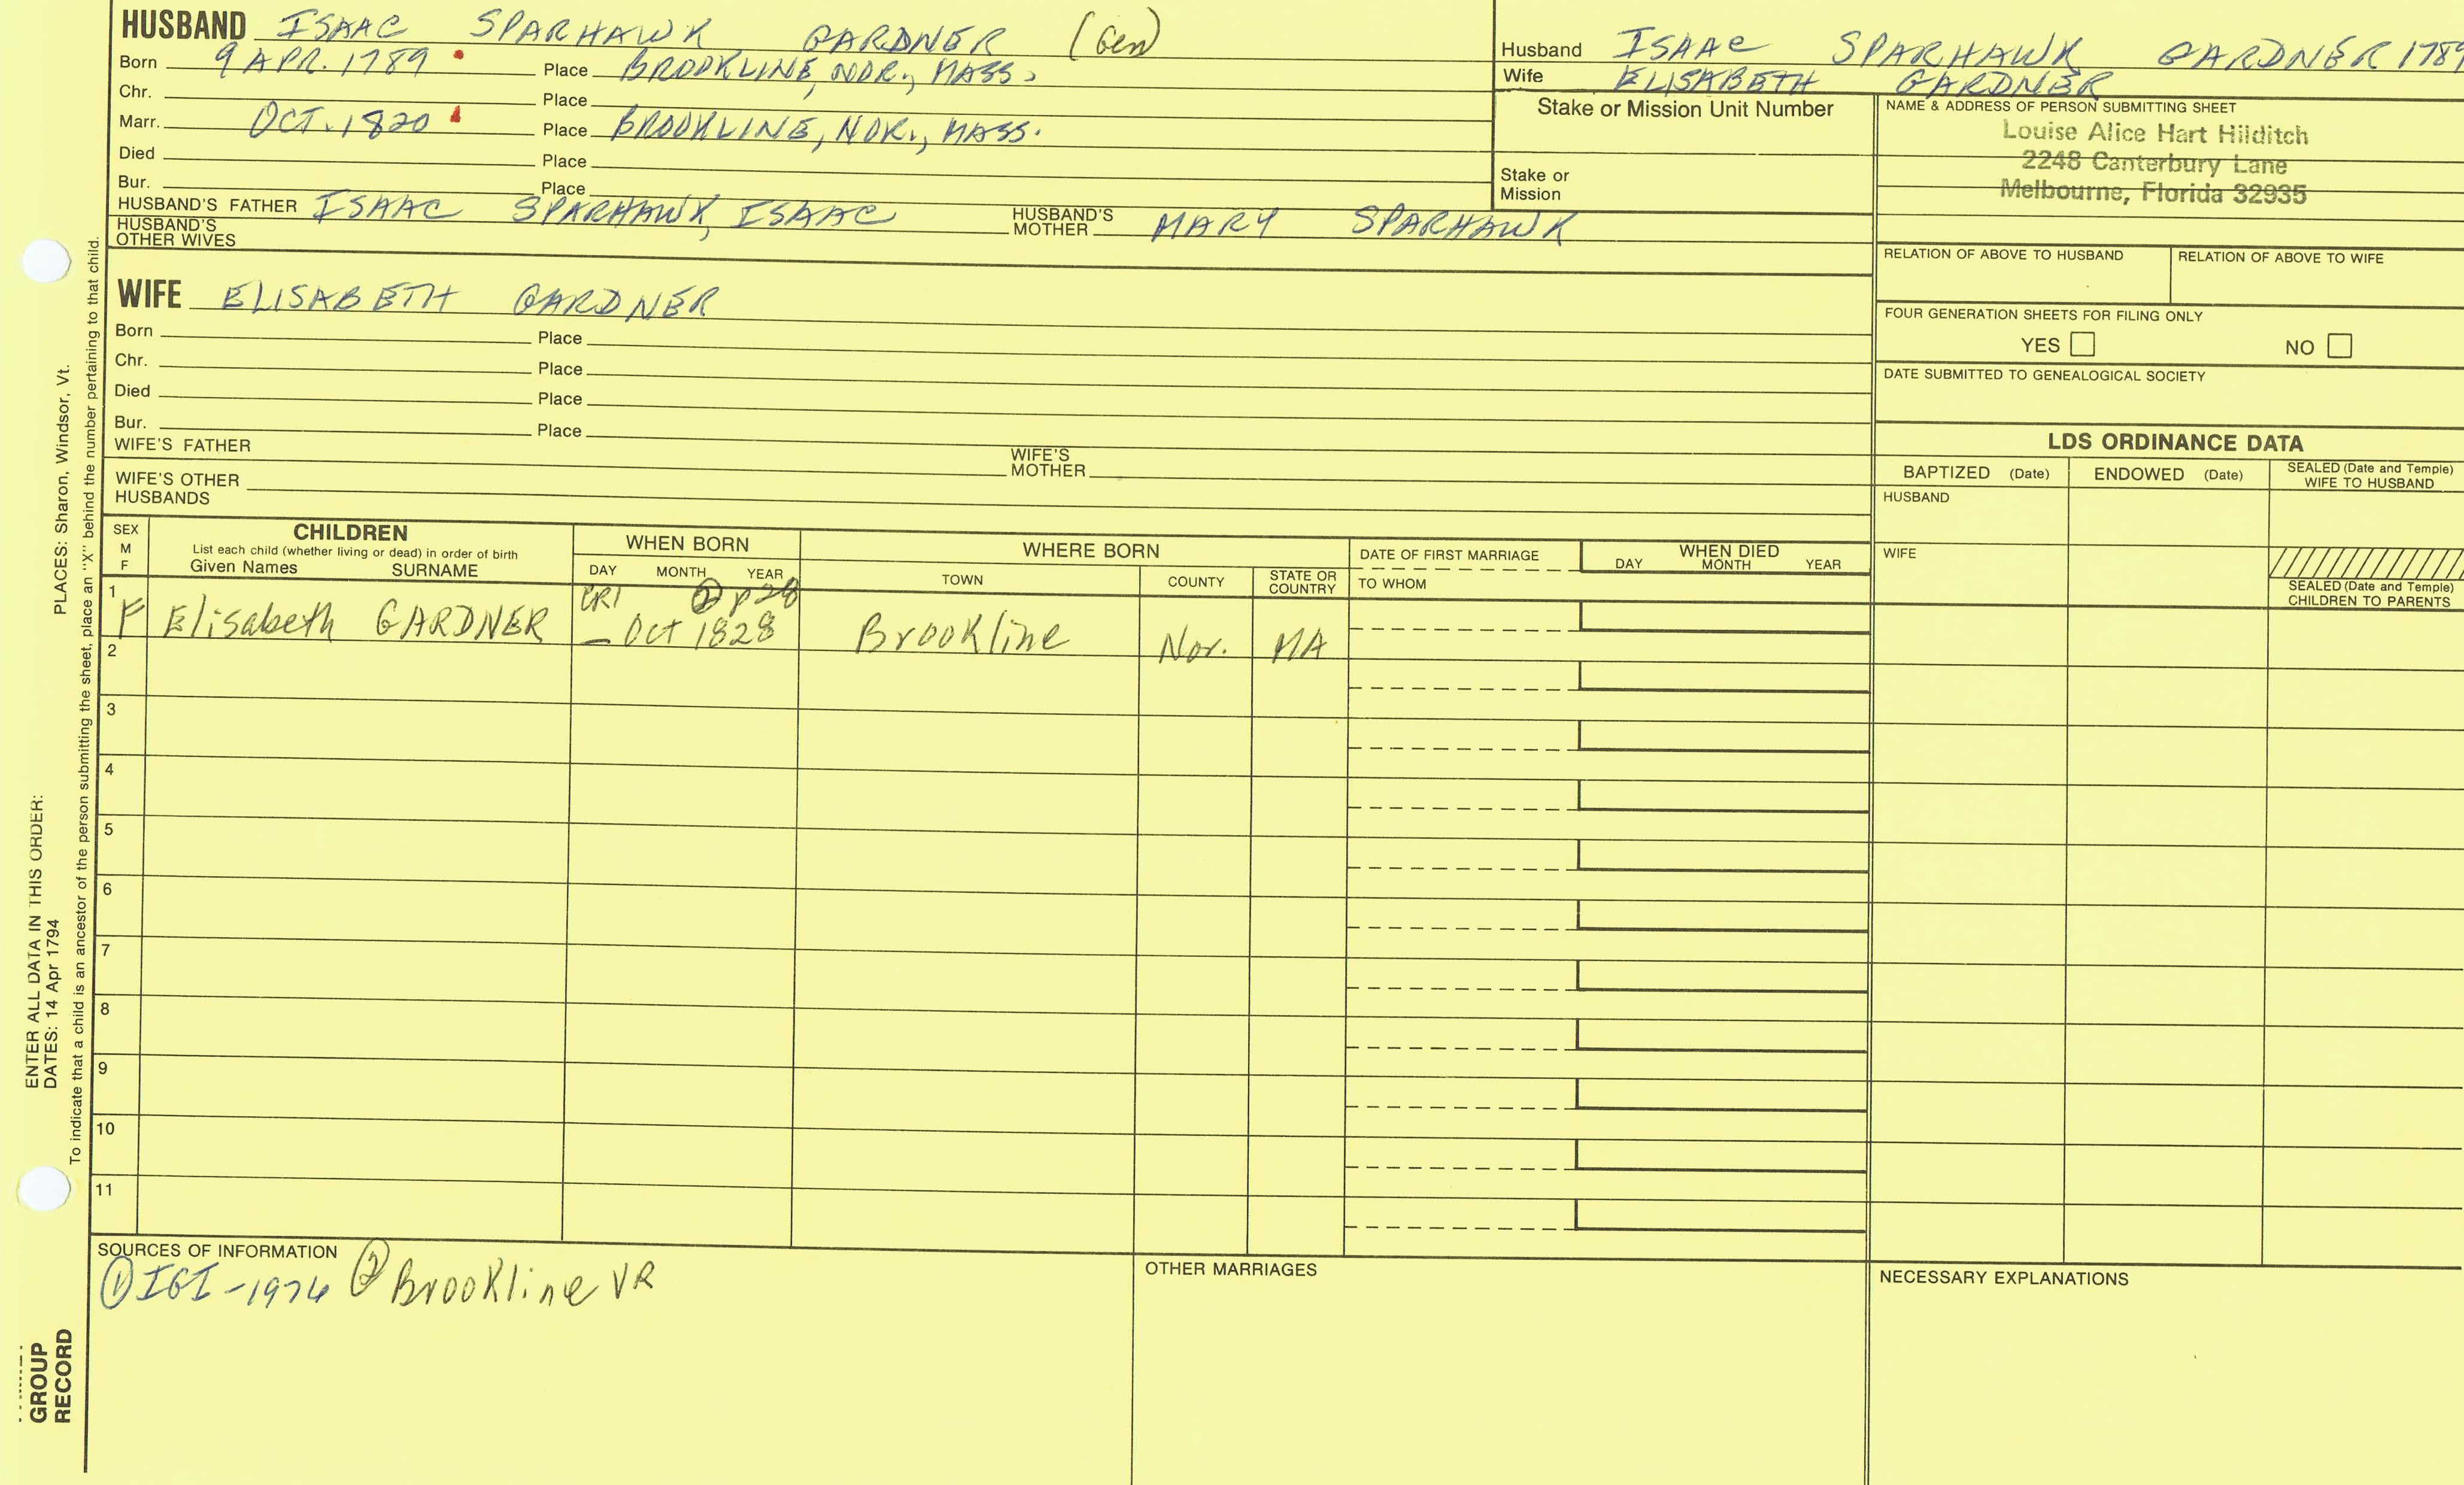 HUSBAND ISAAC SPARHAWK GARDNER (Gen)
Born 9 APR. 1789 Place BROOKLINE, NOR., MASS.
Chr. Place
Marr. OCT. 1820 Place BROOKLINE, NOR., MASS.
Died Place
Bur. Place
HUSBAND'S FATHER ISAAC SPARHAWK, ISAAC HUSBAND'S MOTHER MARY SPARHAWK
HUSBAND'S OTHER WIVES
Husband ISAAC SPARHAWK GARDNER 1789
Wife ELISABETH GARDNER
Stake or Mission Unit Number
Stake or
Mission
NAME & ADDRESS OF PERSON SUBMITTING SHEET
Louise Alice Hart Hilditch
2248 Canterbury Lane
Melbourne, Florida 32935
RELATION OF ABOVE TO HUSBAND RELATION OF ABOVE TO WIFE
FOUR GENERATION SHEETS FOR FILING ONLY
YES NO
DATE SUBMITTED TO GENEALOGICAL SOCIETY
WIFE ELISABETH GARDNER
Born Place
Chr. Place
Died Place
Bur. Place
WIFE'S FATHER WIFE'S MOTHER
WIFE'S OTHER HUSBANDS
LDS ORDINANCE DATA
BAPTIZED (Date) ENDOWED (Date) SEALED (Date and Temple) WIFE TO HUSBAND
HUSBAND
WIFE
SEALED (Date and Temple)
CHILDREN TO PARENTS
SEX M F
CHILDREN
List each child (whether living or dead) in order of birth
Given Names SURNAME
WHEN BORN
DAY MONTH YEAR
WHERE BORN
TOWN COUNTY STATE OR COUNTRY
DATE OF FIRST MARRIAGE
TO WHOM
WHEN DIED
DAY MONTH YEAR
② p28
1 F Elisabeth GARDNER — Oct 1828 Brookline Nor. MA
2
3
4
5
6
7
8
9
10
11
SOURCES OF INFORMATION
① IGI - 1976 ② Brookline VR
OTHER MARRIAGES
NECESSARY EXPLANATIONS
ENTER ALL DATA IN THIS ORDER:
DATES: 14 Apr 1794 PLACES: Sharon, Windsor, Vt.
To indicate that a child is an ancestor of the person submitting the sheet, place an "X" behind the number pertaining to that child.
GROUP
RECORD